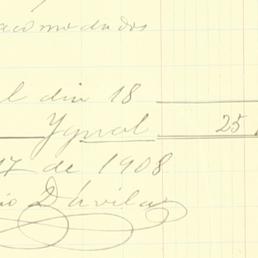 acomodados
l dia 18
Ygual 25
17 de 1908
io Dávila